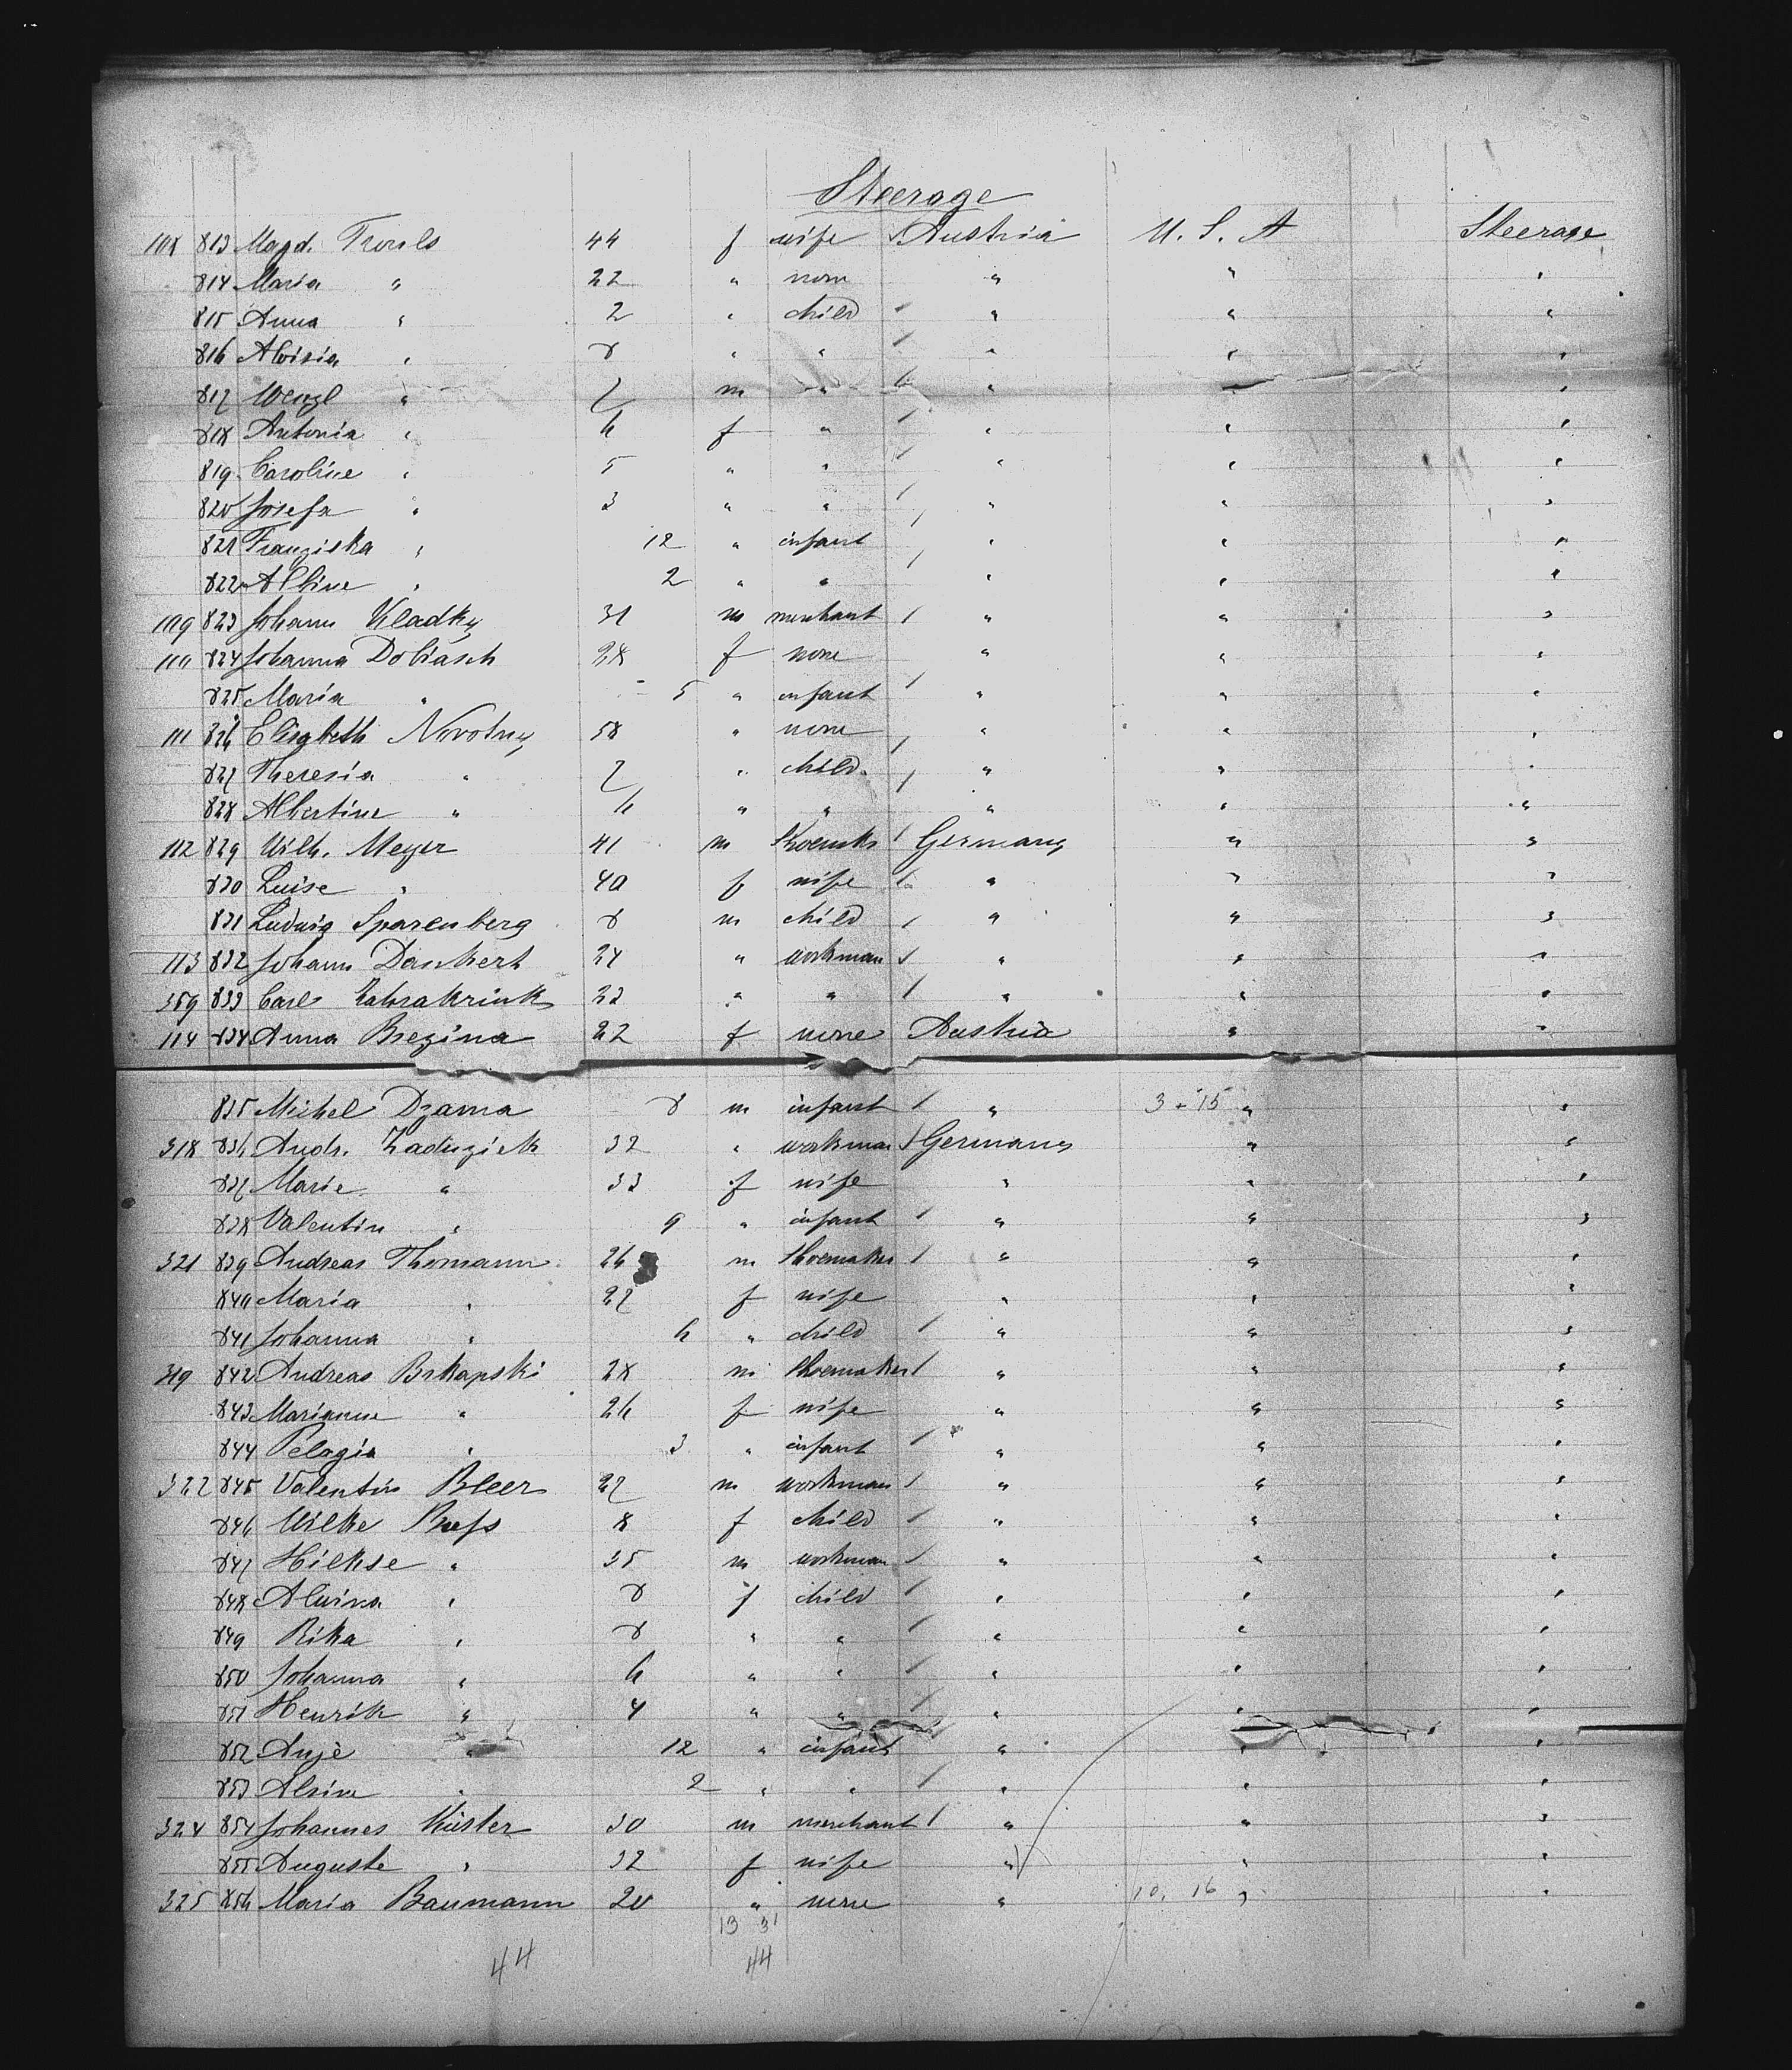 Steerage
108 813 Magd. 44 f wife Austria U. S. A Steerage
814 Maria " 22 " none " " "
815 Anna " 2 " child " " "
816 Aloisia " 8 " " " " "
817 Wenzl " 7 m " " " "
818 Antonia " 6 f " " " "
819 Caroline " 5 " " " " "
820 Josefa " 3 " " " " "
821 Franziska " 12 " infant " " "
822 Albine " 2 " " " " "
109 823 Johann Kladky 31 m merchant " " "
110 824 Johanna Dobiasch 28 f none " " "
825 Maria " 5 " infant " " "
111 826 Elisabeth Novotny 58 " none " " "
827 Theresia " 7 " child " " "
828 Albertine " 6 " " " " "
112 829 Wilh. Meyer 41 m Germany " "
830 Luise " 40 f wife " " "
831 Ludwig Sparenberg 8 m child " " "
113 832 Johann Dankert 24 " workman " " "
359 833 Carl 23 " " " " "
114 834 Anna Brezina 22 f none Austria " "
835 Michel Dzama 8 m infant " 3 - 15 " "
318 836 Andr. Zaduziek 32 " workman Germany " "
837 Marie " 33 f wife " " "
838 Valentin " 9 " infant " " "
321 839 Andreas Thomann 26 m Shoemaker " " "
840 Maria " 27 f wife " " "
841 Johanna " 6 " child " " "
319 842 Andreas Brkapski 28 m Shoemaker " " "
843 Marianne " 26 f wife " " "
844 Pelagia " 3 " infant " " "
322 845 Valentin Bleer 27 m workman " " "
846 Wilke 8 f child " " "
847 Hilkse " 35 m workman " " "
848 Alwina " 8 f child " " "
849 Rika " 8 " " " " "
850 Johanna " 6 " " " " "
851 Henrik " 4 " " " " "
852 Anje " 12 " infant " " "
853 " 2 " " " " "
324 854 Johannes Küster 30 m merchant " " "
855 Auguste " 32 f wife " " "
325 856 Maria Baumann 20 " none " 10, 16 " "
13 31
44 44